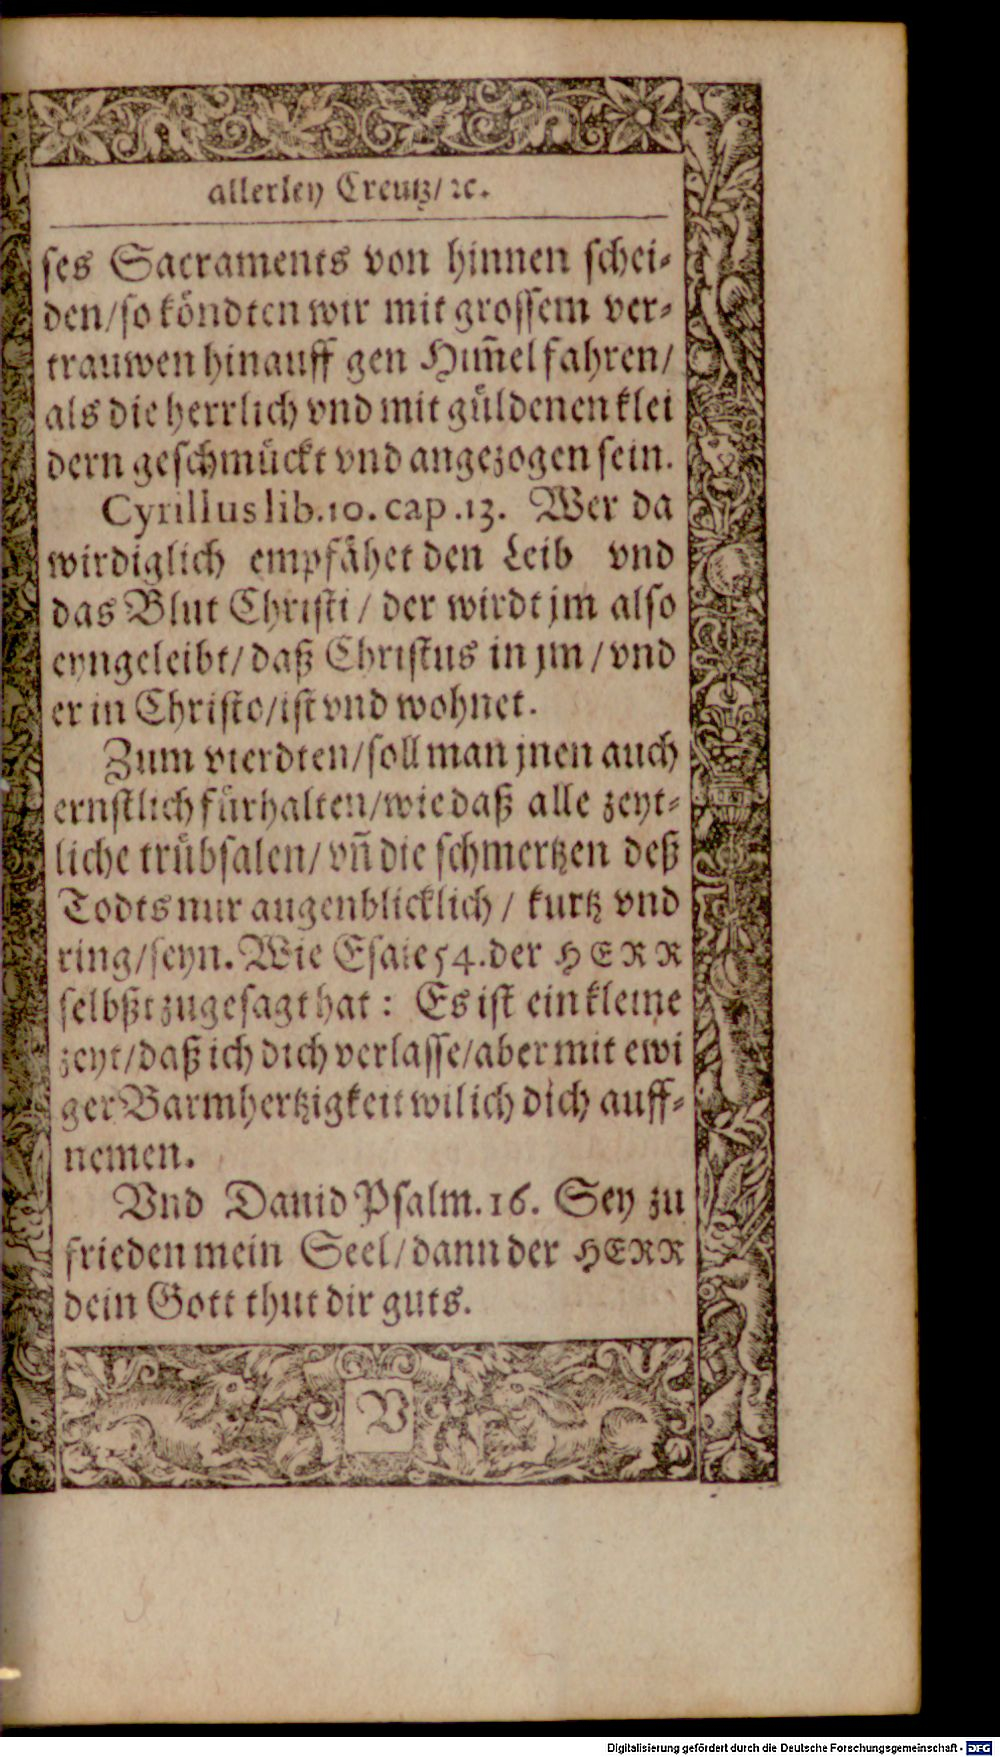 allerley Creutz/ ꝛc.
ses Sacraments von hinnen schei-
den/so köndten wir mit grossem ver-
trauwen hinauff gen Him̃el fahren/
als die herrlich vnd mit güldenen klei
dern geschmückt vnd angezogen sein.
Cyrillus lib.10. cap.13. Wer da
wirdiglich empfähet den Leib vnd
das Blut Christi / der wirdt jm also
eyngeleibt/ daß Christus in jm / vnd
er in Christo/ist vnd wohnet.
Zum vierdten/soll man jnen auch
ernstlich fürhalten/wie daß alle zeyt-
liche trübsalen/ vñ die schmertzen deß
Todts nur augenblicklich / kurtz vnd
ring/seyn. Wie Esaie 54. der HERR
selbßt zugesagt hat : Es ist ein kleine
zeyt/daß ich dich verlasse/aber mit ewi
ger Barmhertzigkeit wil ich dich auff-
nemen.
Vnd Dauid Psalm. 16. Sey zu
frieden mein Seel/dann der HERR
dein Gott thut dir guts.
V
Digitalisierung gefördert durch die Deutsche Forschungsgemeinschaft - DFG